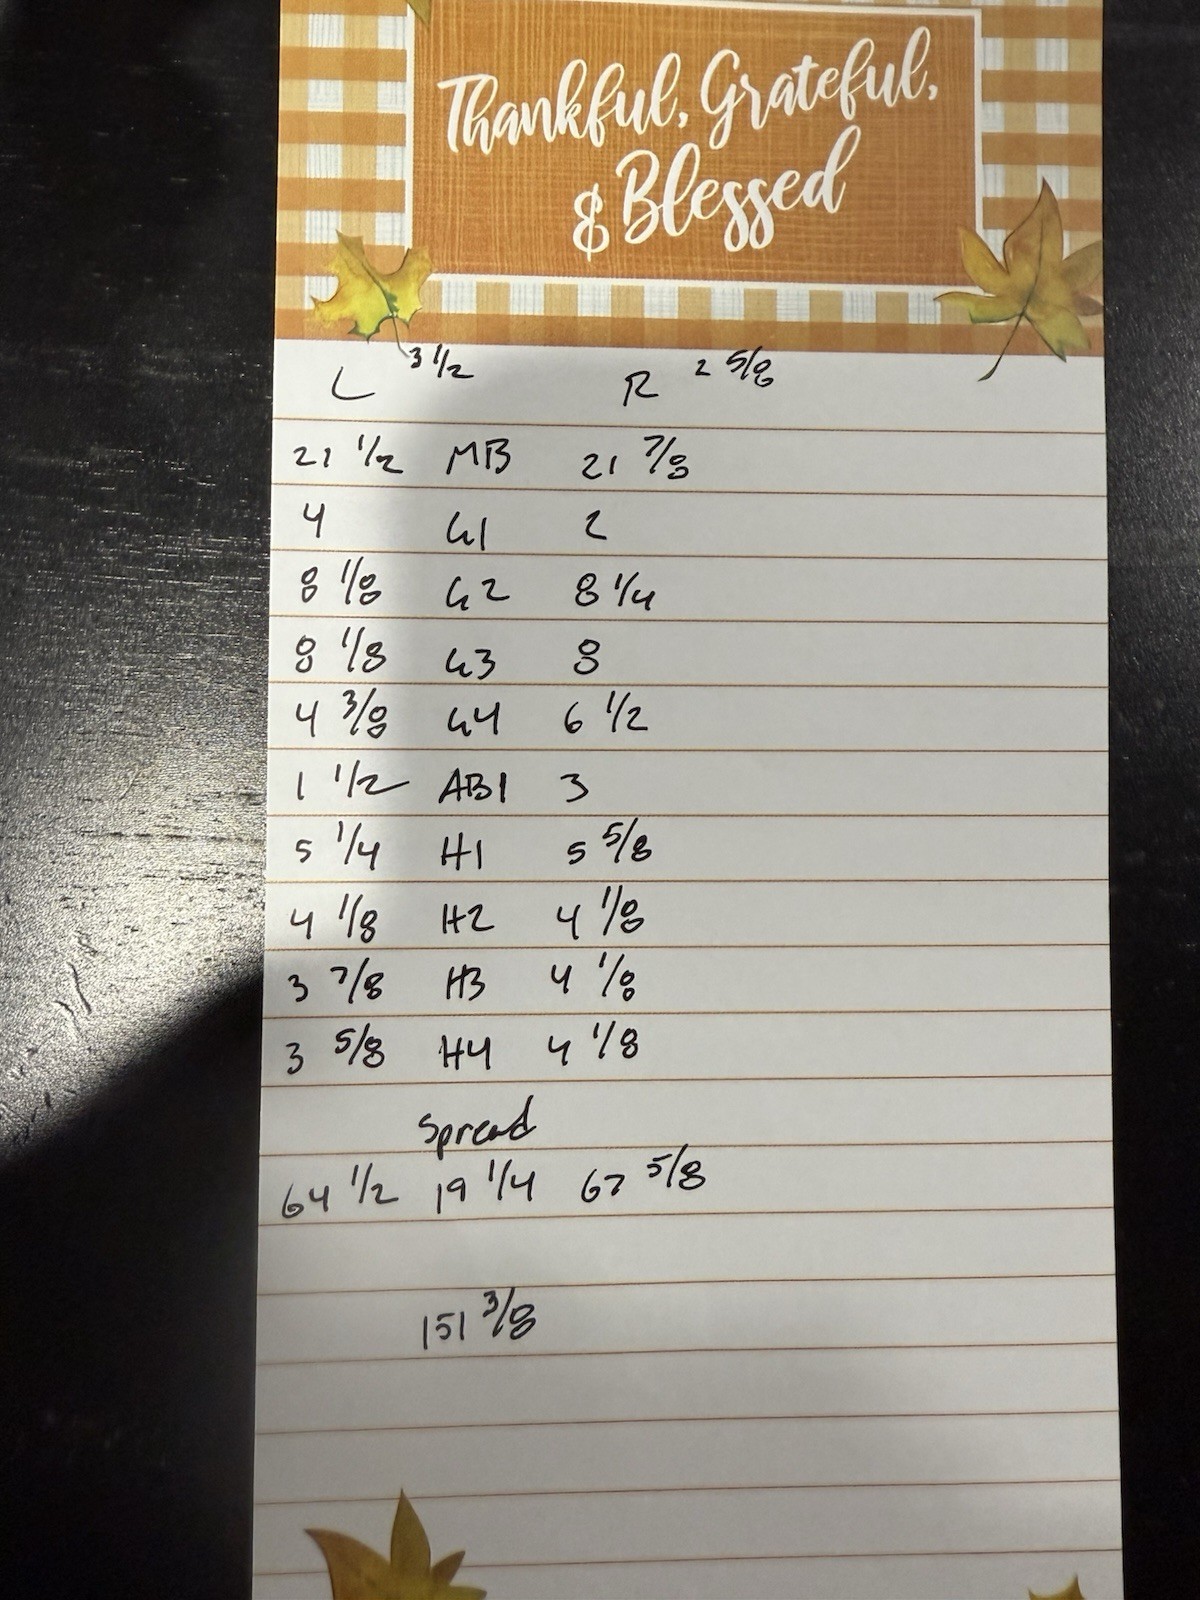 Thankful, Grateful,
& Blessed
L 3 1/2 R 2 5/8
21 1/2 MB 21 7/8
4 G1 2
8 1/8 G2 8 1/4
8 1/8 G3 8
4 3/8 G4 6 1/2
1 1/2 AB1 3
5 1/4 H1 5 5/8
4 1/8 H2 4 1/8
3 7/8 H3 4 1/8
3 5/8 H4 4 1/8
Spread
64 1/2 19 1/4 67 5/8
151 3/8